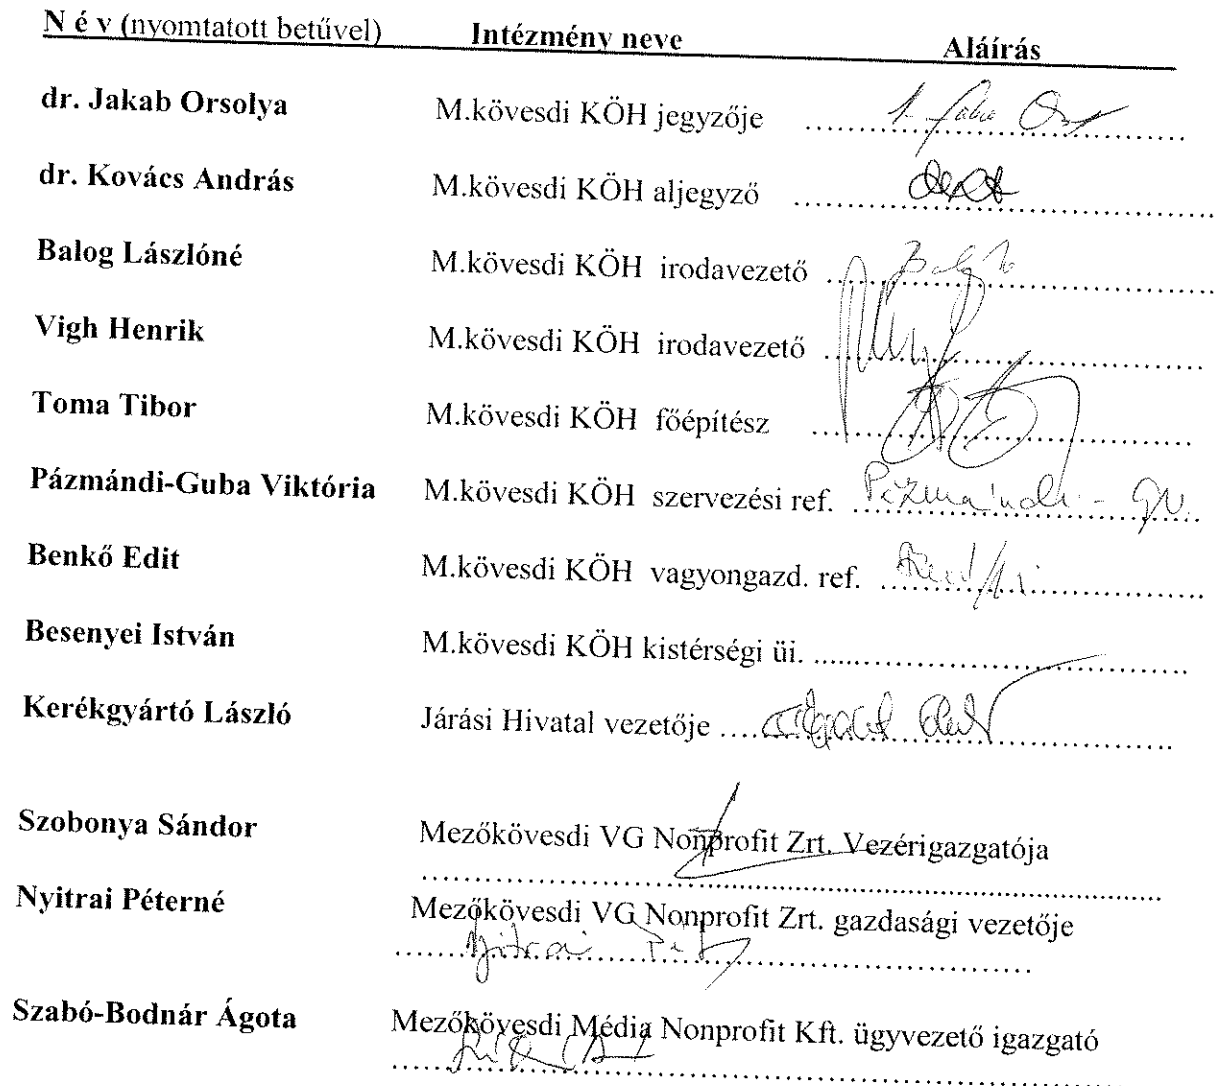 N é v (nyomtatott betűvel) Intézmény neve Aláírás
dr. Jakab Orsolya M.kövesdi KÖH jegyzője
dr. Kovács András M.kövesdi KÖH aljegyző
Balog Lászlóné M.kövesdi KÖH irodavezető
Vigh Henrik M.kövesdi KÖH irodavezető
Toma Tibor M.kövesdi KÖH főépítész
Pázmándi-Guba Viktória M.kövesdi KÖH szervezési ref. Pázmándi - GV.
Benkő Edit M.kövesdi KÖH vagyongazd. ref.
Besenyei István M.kövesdi KÖH kistérségi üi.
Kerékgyártó László Járási Hivatal vezetője
Szobonya Sándor Mezőkövesdi VG Nonprofit Zrt. Vezérigazgatója
Nyitrai Péterné Mezőkövesdi VG Nonprofit Zrt. gazdasági vezetője
Nyitrai
Szabó-Bodnár Ágota Mezőkövesdi Média Nonprofit Kft. ügyvezető igazgató